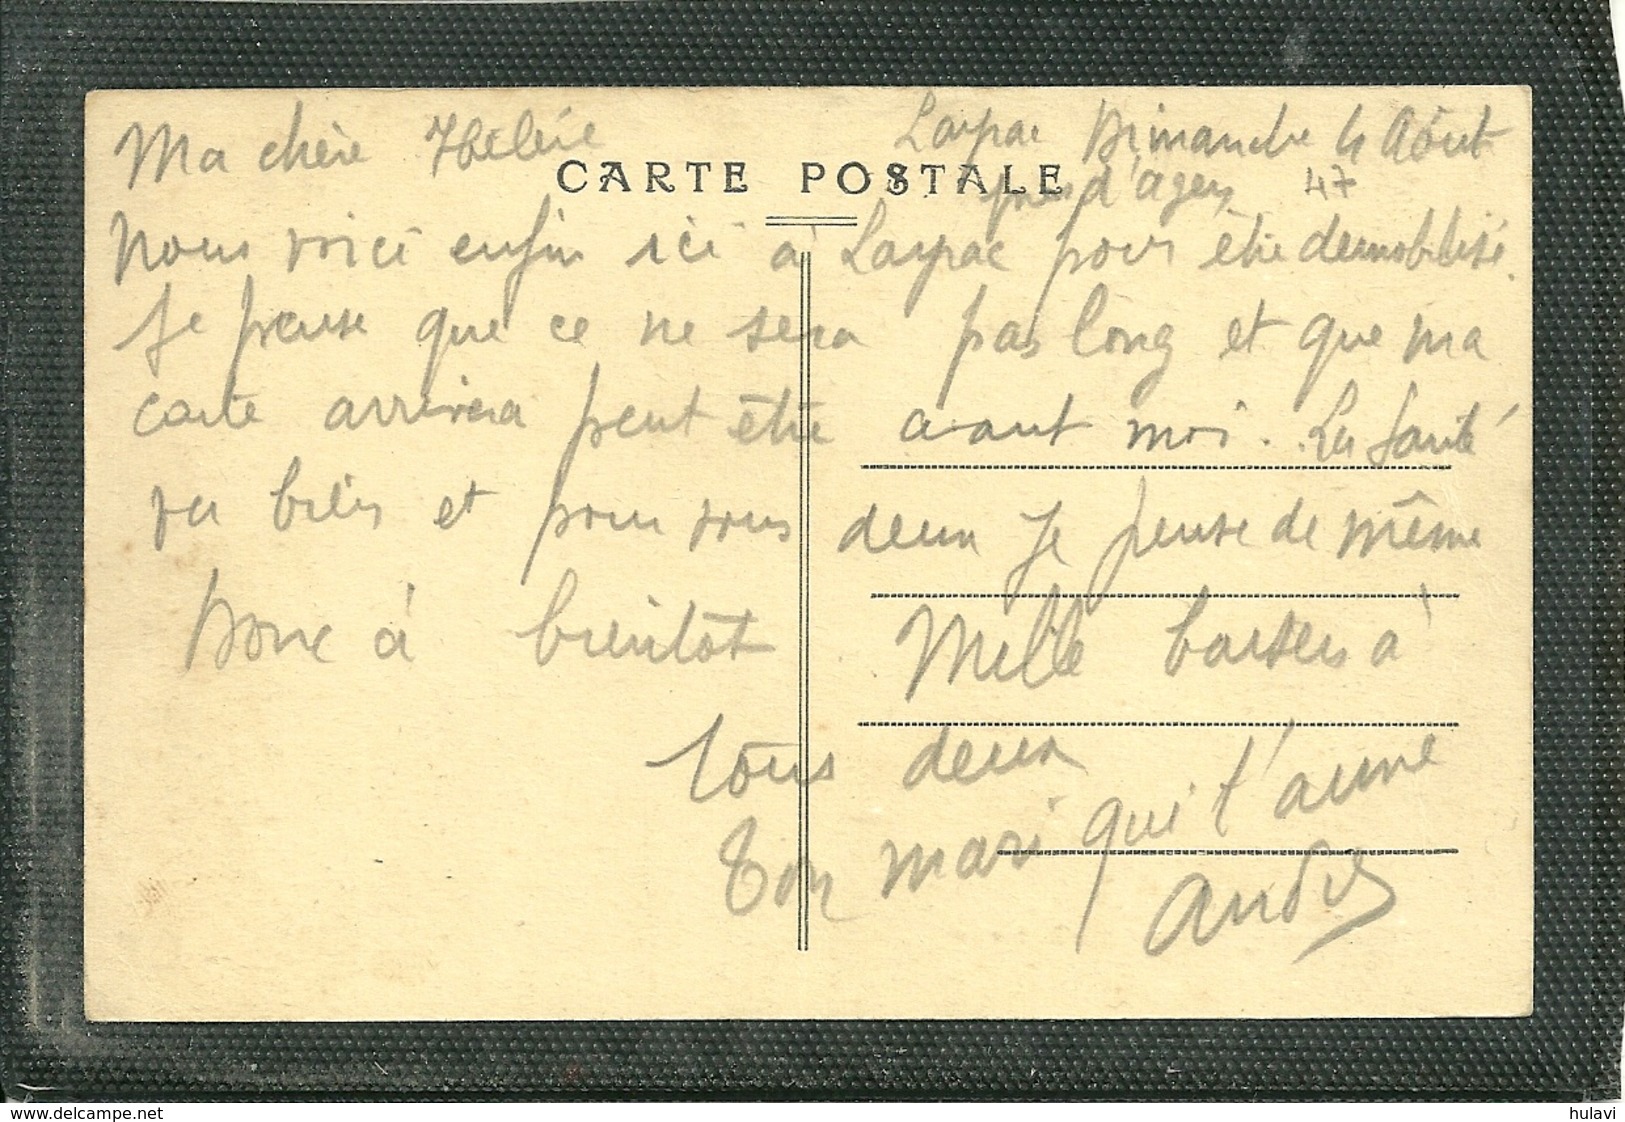 Ma chère Hélène
Layrac Dimanche 4 Août
CARTE POSTALE
près d'agen 47
Nous voici enfin ici a Layrac pour être demobilisé.
Je pense que ce ne sera pas long et que ma
carte arrivera peut être avant moi. La Santé
va bien et pour vous deux je pense de même
Donc à bientôt Mille baisers à
tous deux
Ton mari qui t'aime
André
www.delcampe.net
hulavi